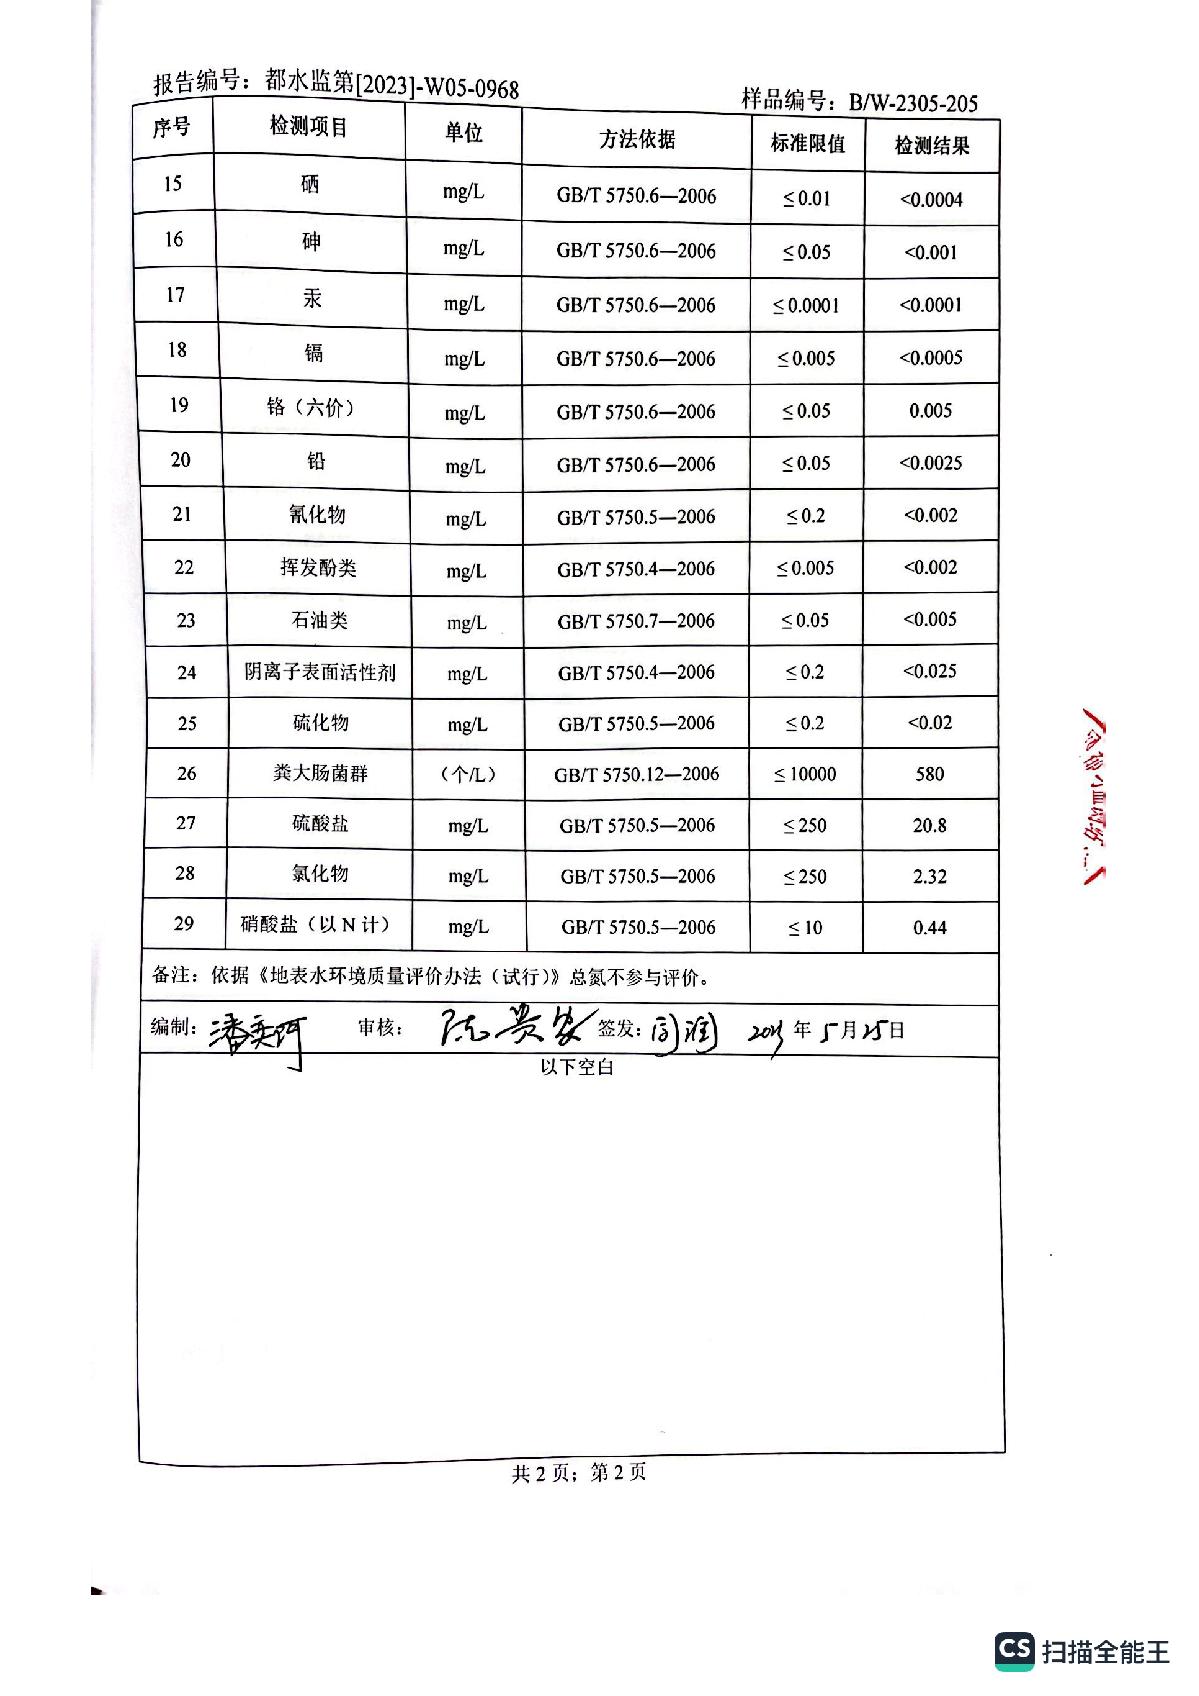 报告编号：都水监第[2023]-W05-0968 样品编号：B/W-2305-205
序号 检测项目 单位 方法依据 标准限值 检测结果
15 硒 mg/L GB/T 5750.6—2006 ≤0.01 <0.0004
16 砷 mg/L GB/T 5750.6—2006 ≤0.05 <0.001
17 汞 mg/L GB/T 5750.6—2006 ≤0.0001 <0.0001
18 镉 mg/L GB/T 5750.6—2006 ≤0.005 <0.0005
19 铬（六价） mg/L GB/T 5750.6—2006 ≤0.05 0.005
20 铅 mg/L GB/T 5750.6—2006 ≤0.05 <0.0025
21 氰化物 mg/L GB/T 5750.5—2006 ≤0.2 <0.002
22 挥发酚类 mg/L GB/T 5750.4—2006 ≤0.005 <0.002
23 石油类 mg/L GB/T 5750.7—2006 ≤0.05 <0.005
24 阴离子表面活性剂 mg/L GB/T 5750.4—2006 ≤0.2 <0.025
25 硫化物 mg/L GB/T 5750.5—2006 ≤0.2 <0.02
26 粪大肠菌群 （个/L） GB/T 5750.12—2006 ≤10000 580
27 硫酸盐 mg/L GB/T 5750.5—2006 ≤250 20.8
28 氯化物 mg/L GB/T 5750.5—2006 ≤250 2.32
29 硝酸盐（以 N 计） mg/L GB/T 5750.5—2006 ≤10 0.44
备注：依据《地表水环境质量评价办法（试行）》总氮不参与评价。
编制： 审核： 签发： 2023 年 5 月 25 日
以下空白
共 2 页；第 2 页
CS 扫描全能王